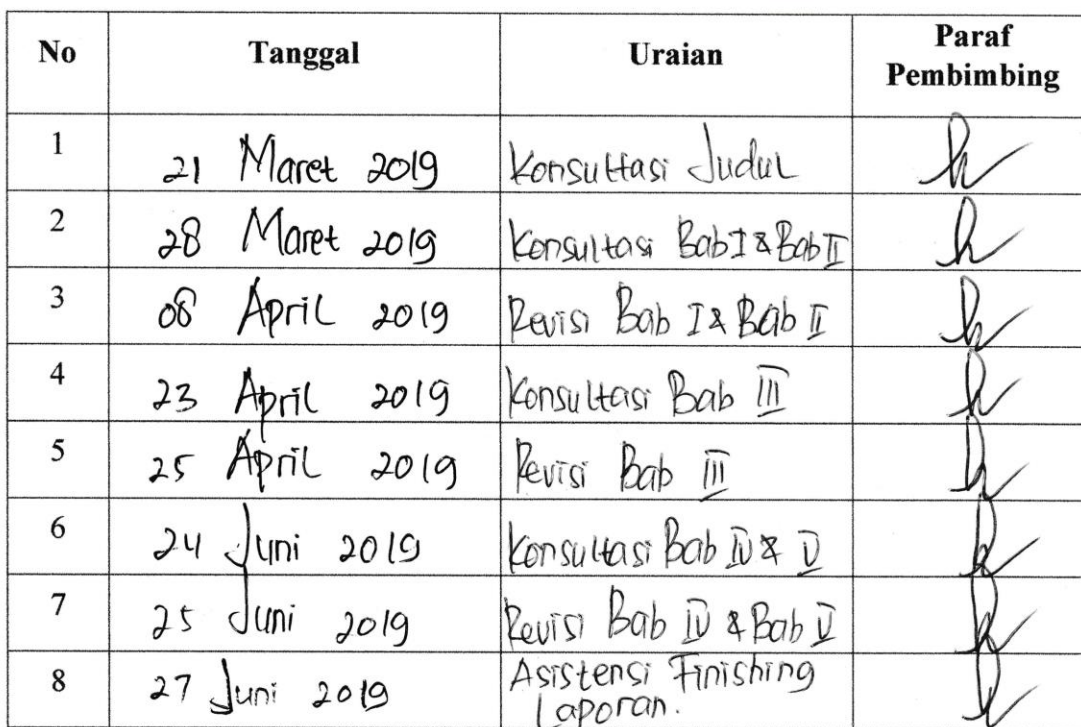 No Tanggal Uraian Paraf Pembimbing
1 21 Maret 2019 Konsultasi Judul
2 28 Maret 2019 Konsultasi Bab I & Bab II
3 08 April 2019 Revisi Bab I & Bab II
4 23 April 2019 Konsultasi Bab III
5 25 April 2019 Revisi Bab III
6 24 Juni 2019 Konsultasi Bab IV & V
7 25 Juni 2019 Revisi Bab IV & Bab V
8 27 Juni 2019 Asistensi Finishing
Laporan.